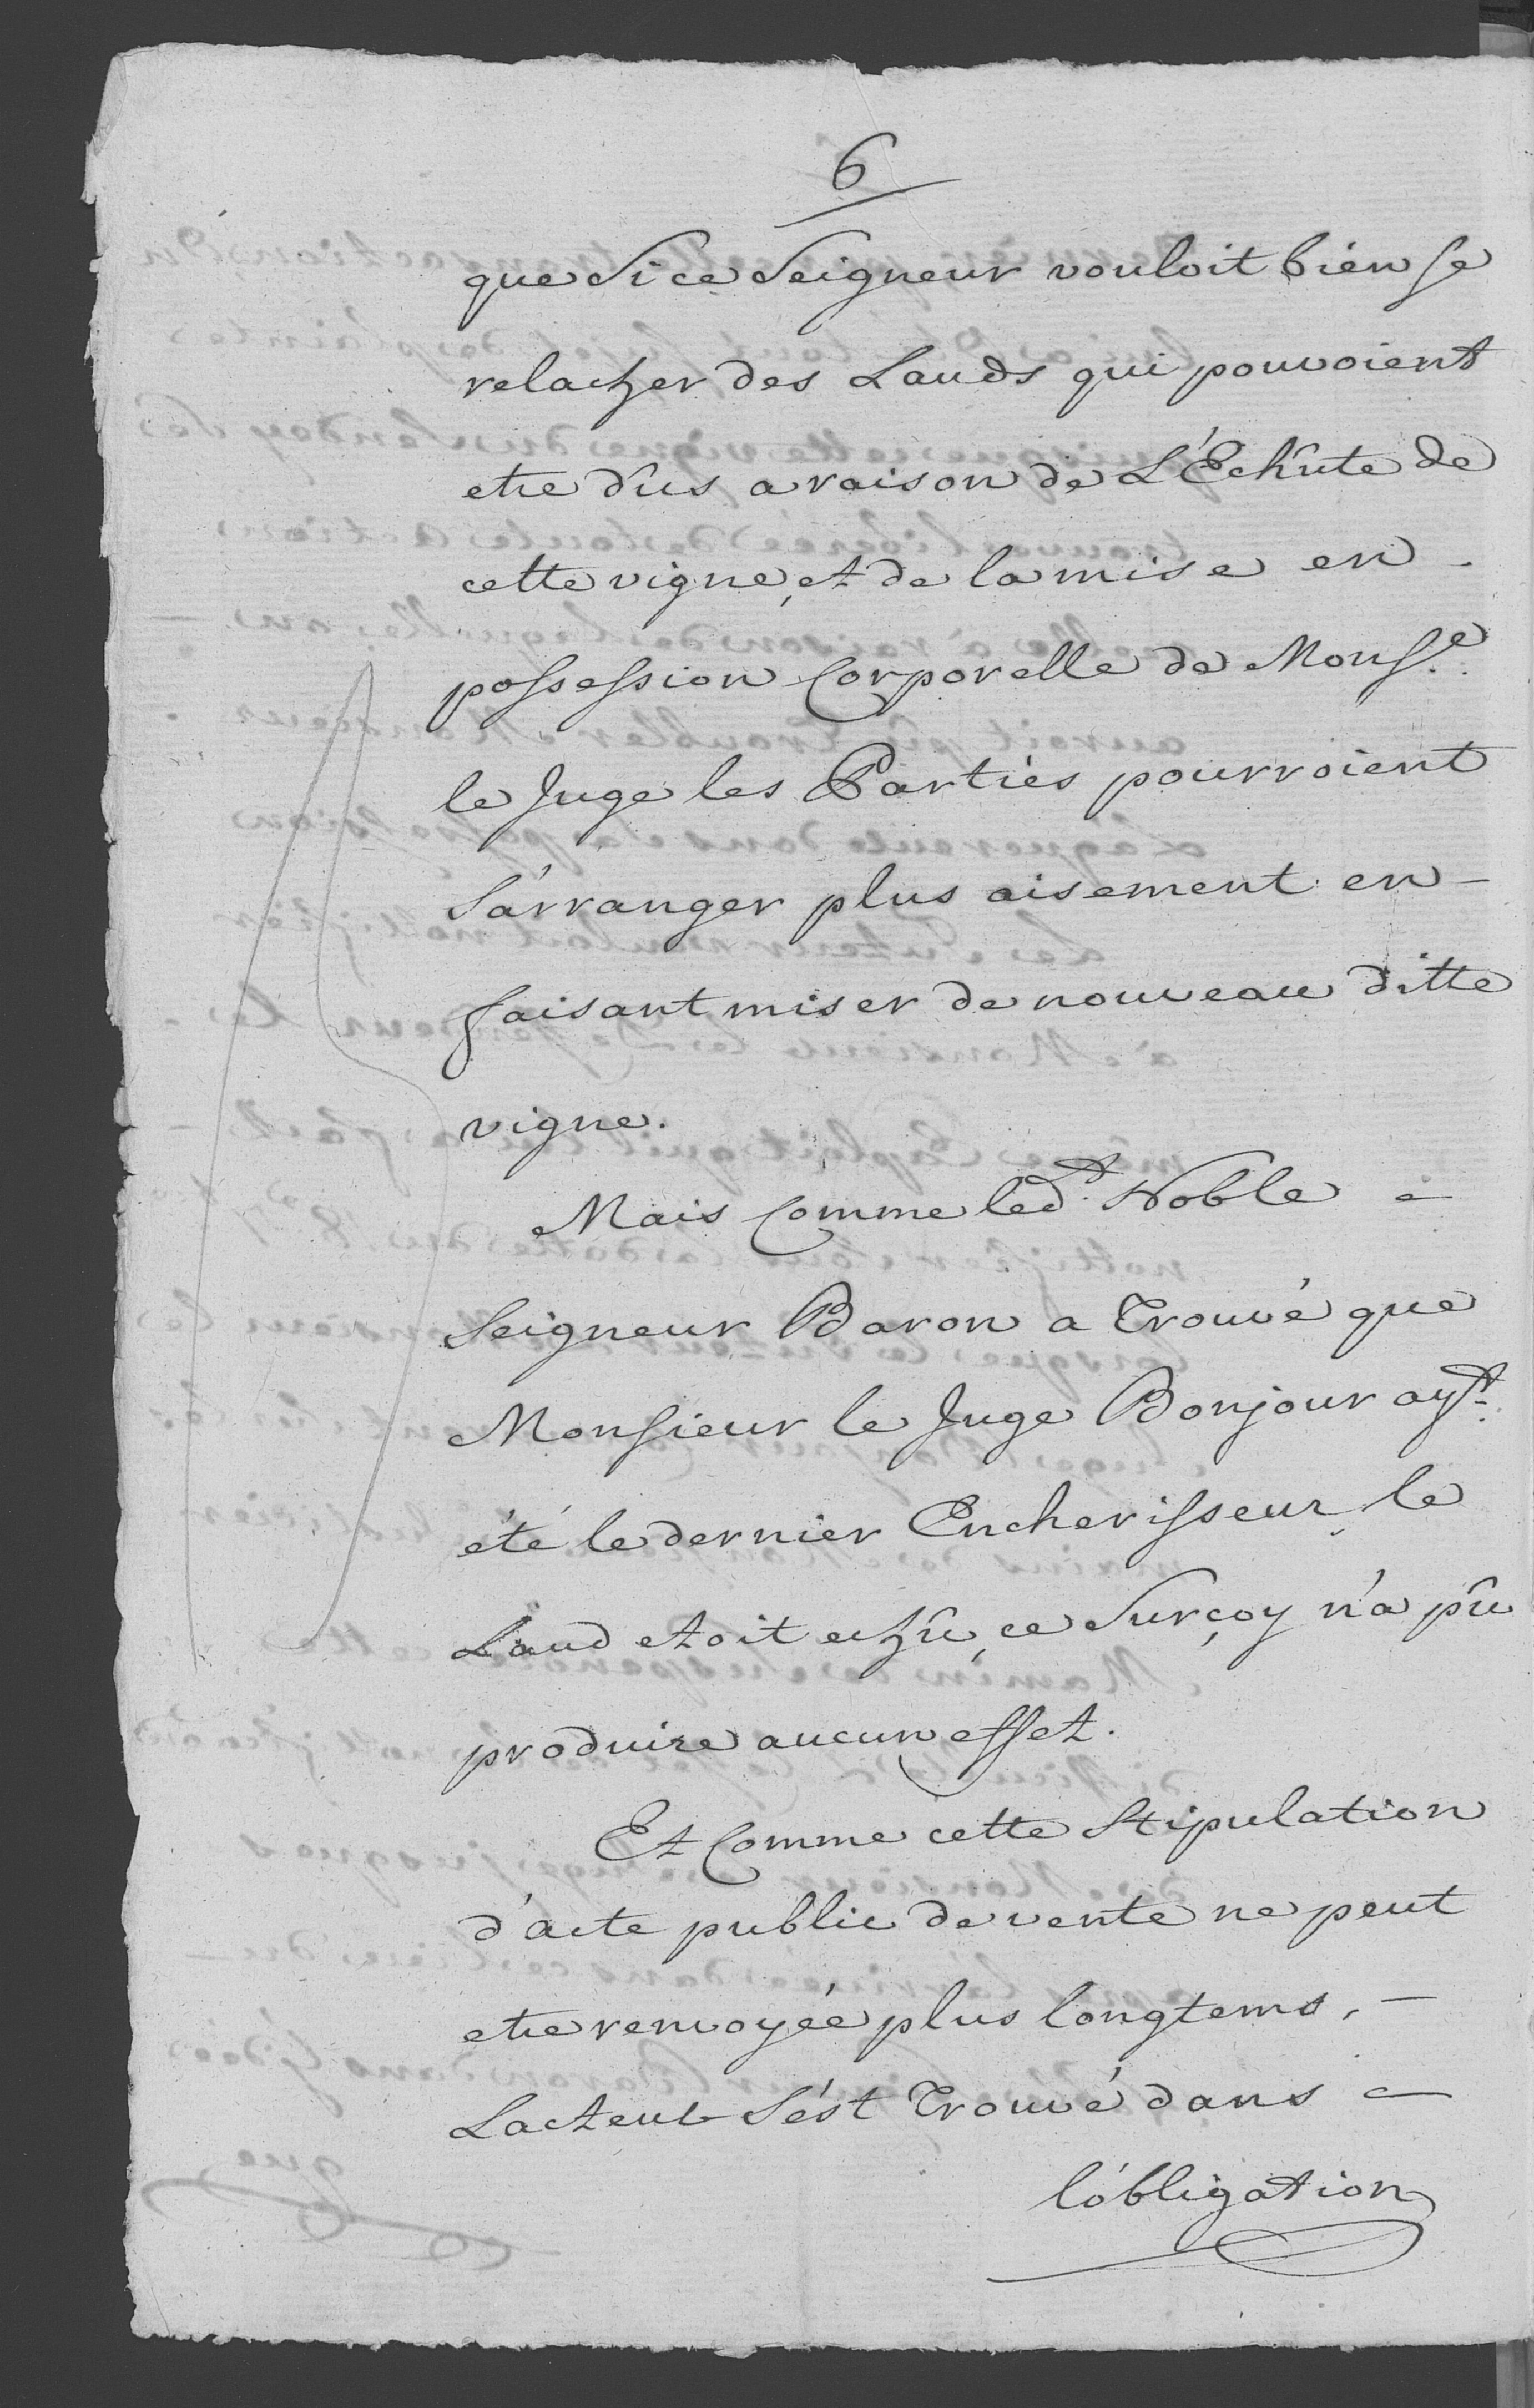 6
que si ce Seigneur vouloit bien se
relacher des Lauds qui pouvoient
etre dûs a raison de L'Echûte de
cette vigne, et de la mise en
possession Corporelle de Monsr.
le Juge les Parties pourroient
s'arranger plus aisement en-
faisant miser de nouveau ditte
vigne.
Mais Comme led.t Noble
Seigneur Baron a Trouvé que
Monsieur le Juge Bonjour ayt.
été le dernier Encherisseur le
Laud etoit echû, ce Surçoy n'a pû
produire aucun effet.
Et Comme cette Stipulation
d'acte public de vente ne peut
etre renvoyée plus longtems, -
Lacteur S'est Trouvé dans
l'obligation